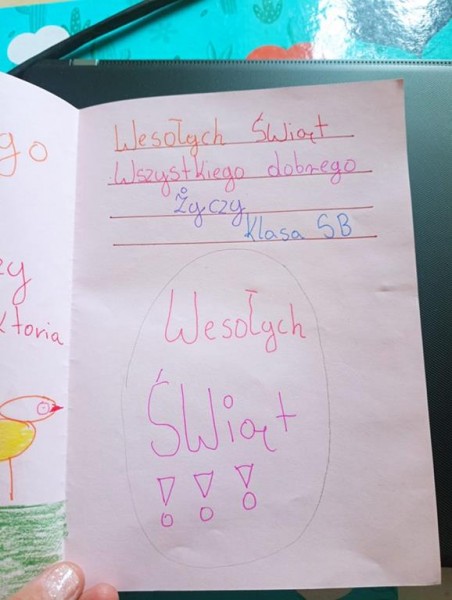 go
ey
ktoria
Wesołych Świąt
Wszystkiego dobrego
Życzy
klasa 5B
Wesołych
Świąt
!!!